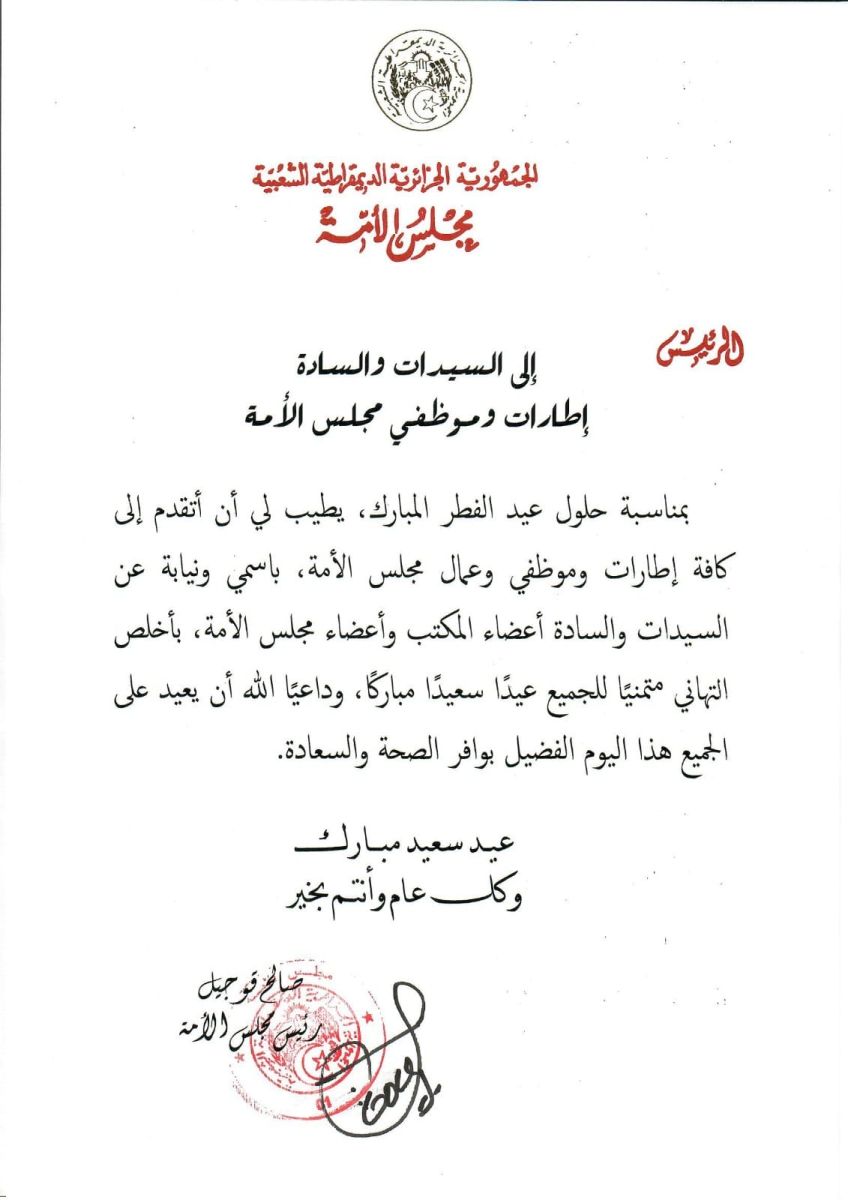 الجمهورية الجزائرية الديمقراطية الشعبية
الجمْهُوريّة الجزائريّة الديمقراطيّة الشّعْبيّة
مجْلسُ الأمّـة
الرئيس
إلى السيدات والسادة
إطارات وموظفي مجلس الأمة
بمناسبة حلول عيد الفطر المبارك، يطيب لي أن أتقدم إلى
كافة إطارات وموظفي وعمال مجلس الأمة، باسمي ونيابة عن
السيدات والسادة أعضاء المكتب وأعضاء مجلس الأمة، بأخلص
التهاني متمنيًا للجميع عيدًا سعيدًا مباركًا، وداعيًا الله أن يعيد على
الجميع هذا اليوم الفضيل بوافر الصحة والسعادة.
عيد سعيد مبارك
وكل عام وأنتم بخير
صالح قوجيل
رئيس مجلس الأمة
مجلس
01